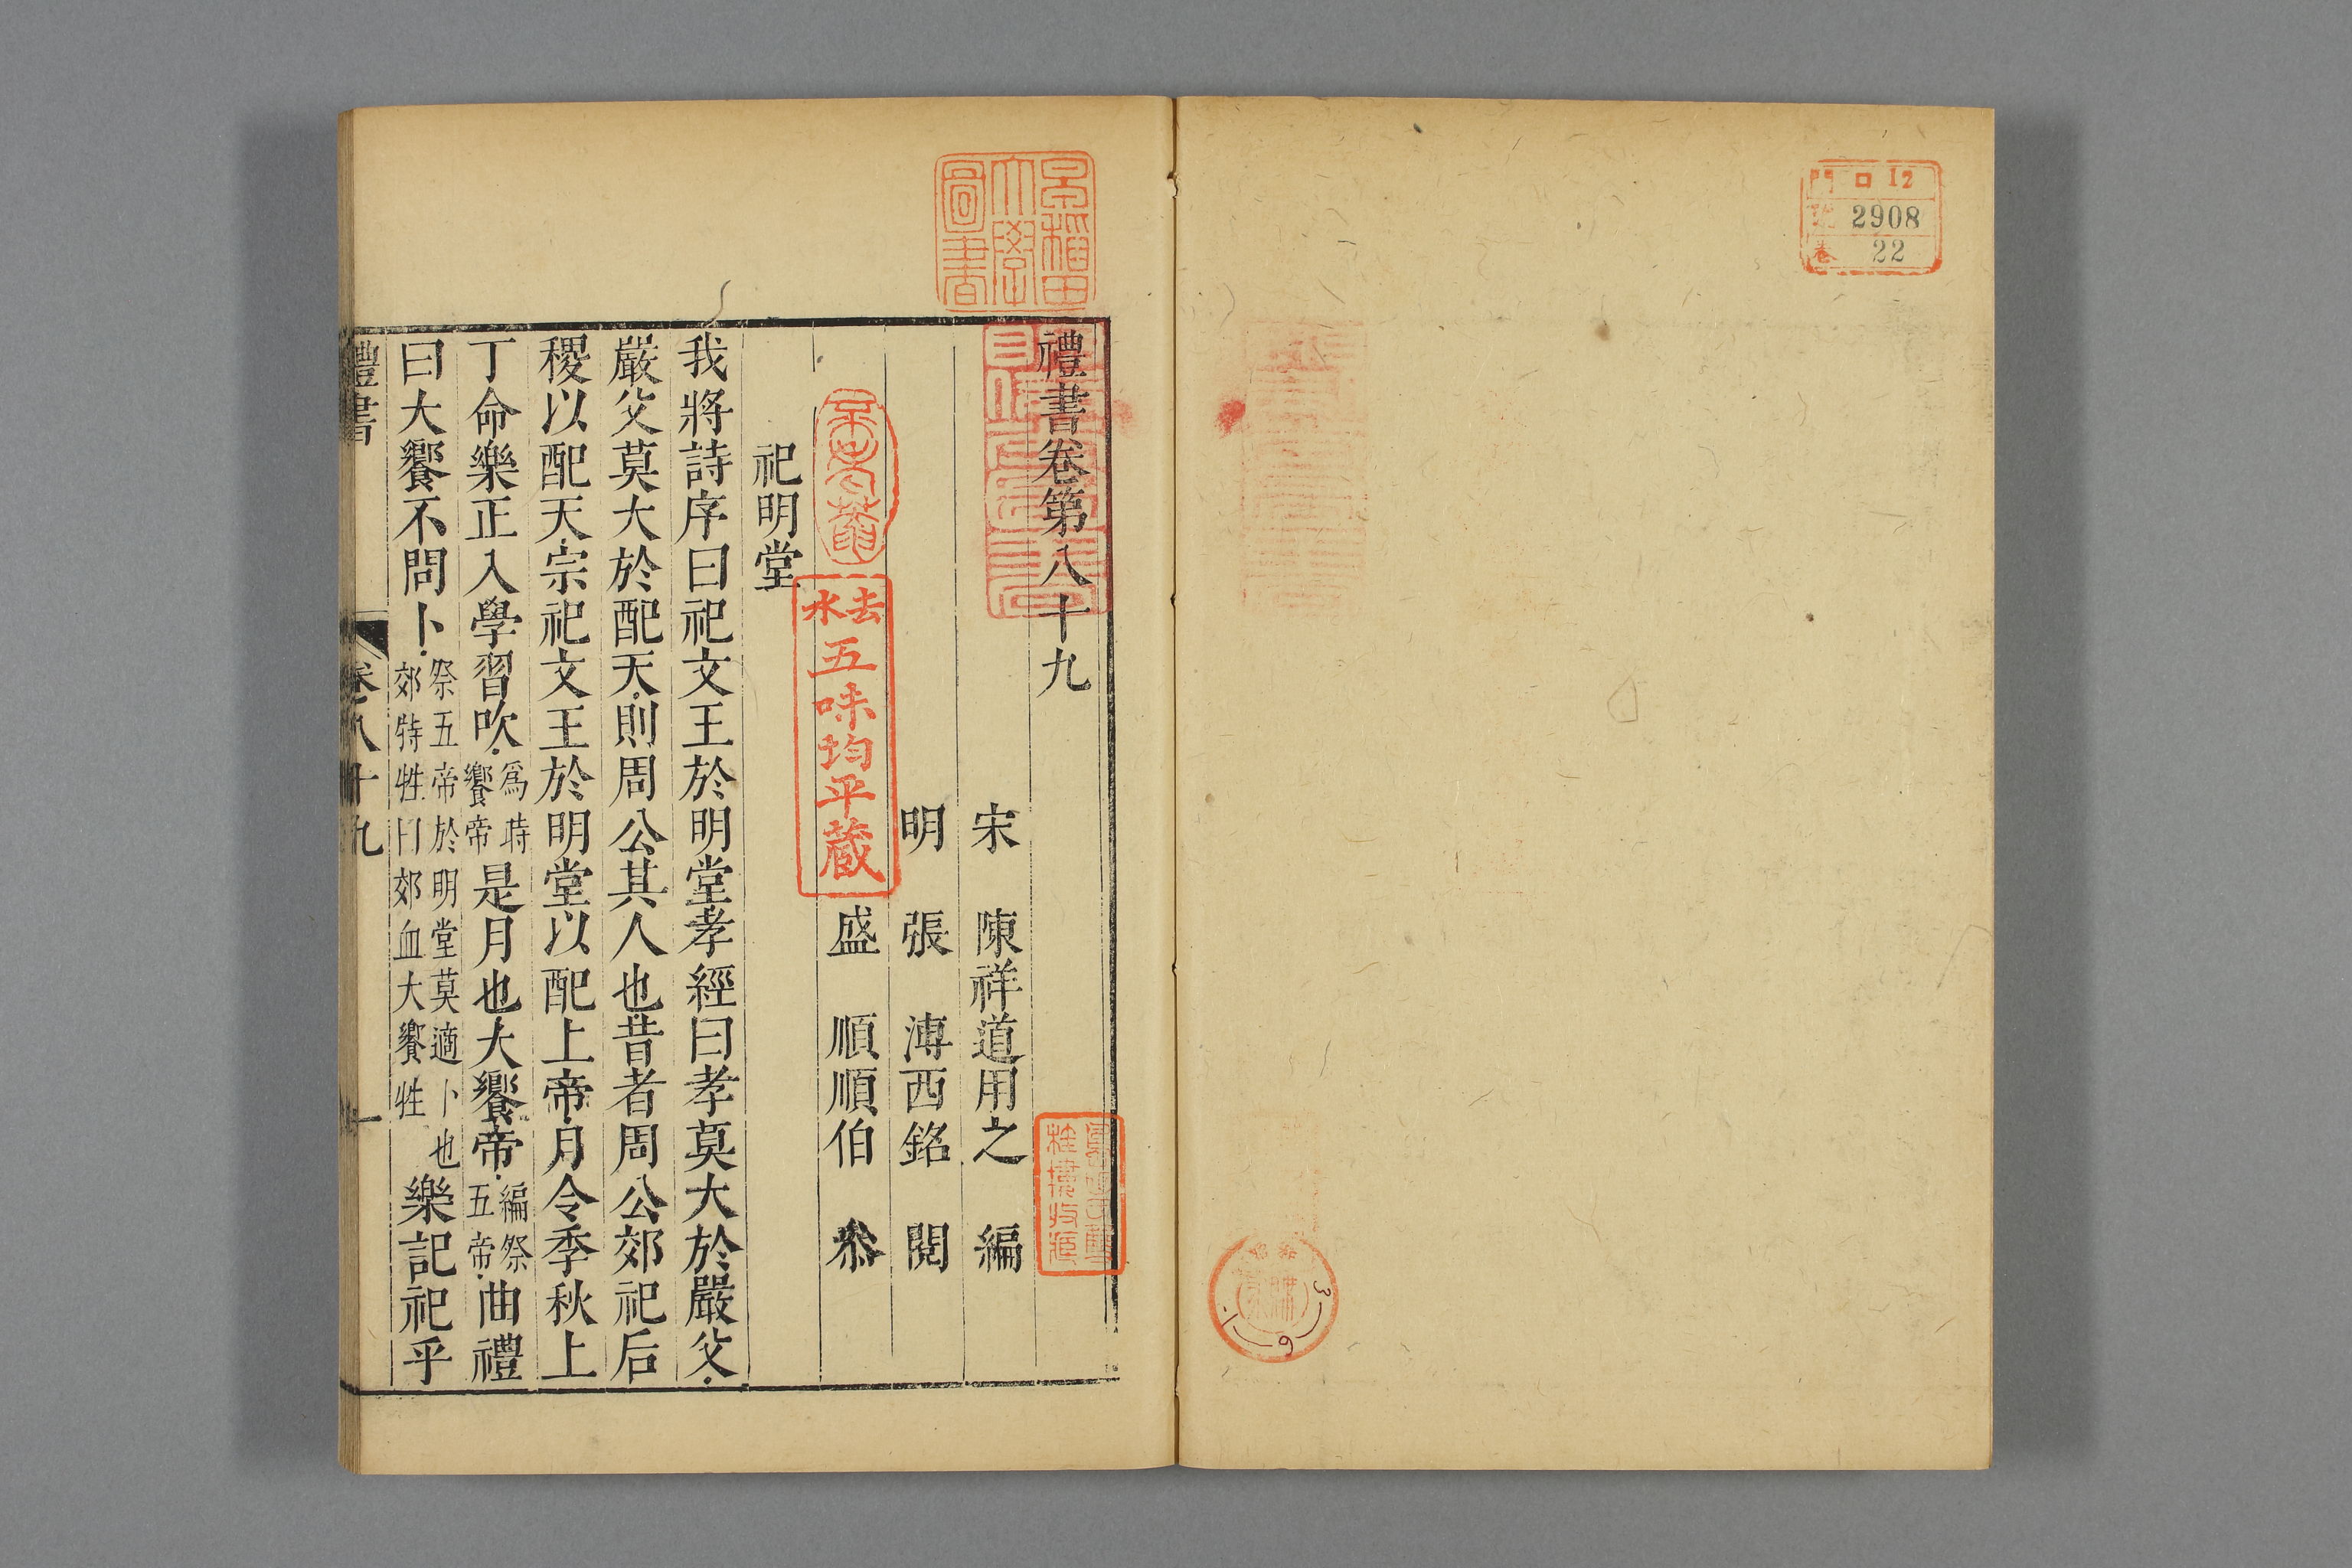 門 ロ 12
號 2908
卷 22
早稲田
大學
圖書
禮書卷第八十九
宋 陳祥道用之 編
明 張 溥西銘 閱
盛 順順伯 叅
去水
五味均平蔵
祀明堂
我將詩序曰祀文王於明堂孝經曰孝莫大於嚴父
嚴父莫大於配天則周公其人也昔者周公郊祀后
稷以配天宗祀文王於明堂以配上帝月令季秋上
丁命樂正入學習吹爲時饗帝是月也大饗帝徧祭五帝曲禮
曰大饗不問卜祭五帝於明堂莫適卜也郊特牲曰郊血大饗牲樂記祀乎
禮書 卷八十九 一